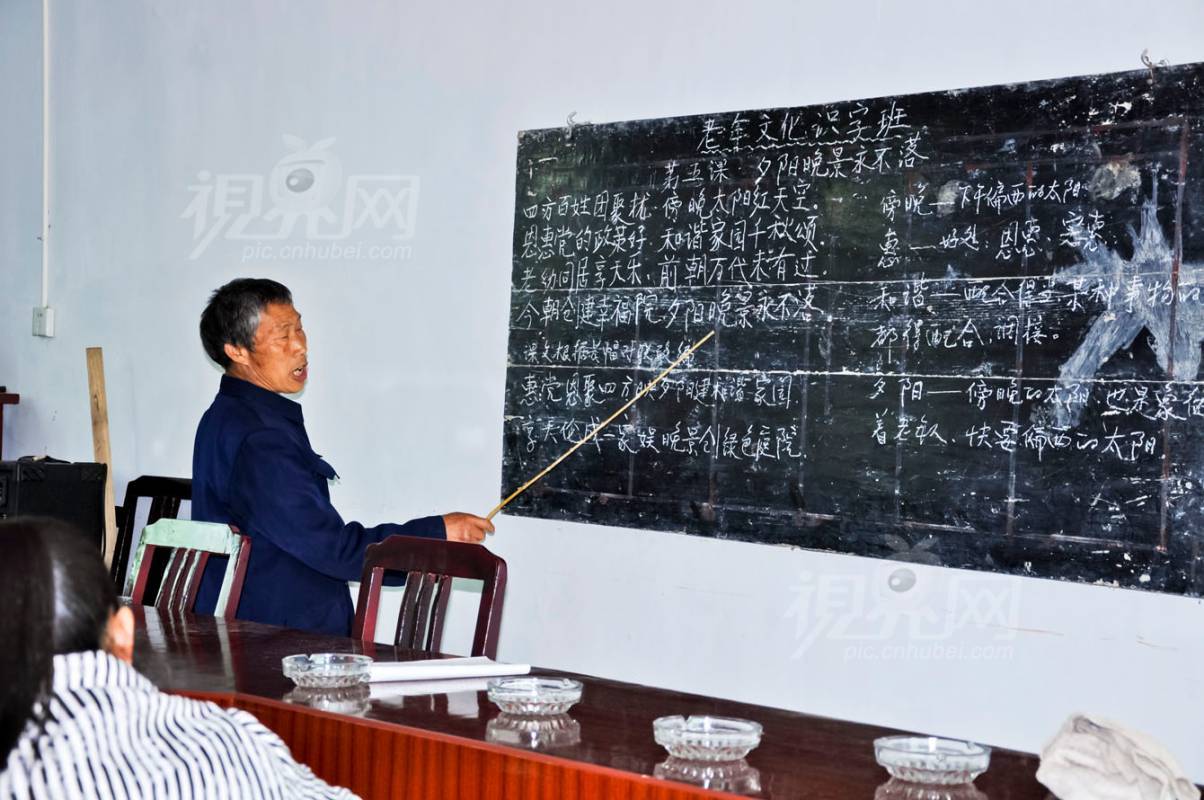 老年文化识字班
第五课 夕阳晚景永不落
四方百姓团聚拢.傍晚太阳红天空.
恩惠党的政策好.和谐家园千秋颂.
老幼同居享天乐.前朝万代未有过.
今朝创建幸福院.夕阳晚景永不落
课文根据
惠党恩聚四方映夕阳建和谐家园.
享天伦成一家娱晚景创绿色庭院.
傍晚——下午偏西的太阳
惠——好处:恩惠、实惠
和谐——配合得 某种事物
都得配合,调接。
夕阳——傍晚的太阳,也是象征
着老年人、快要偏西的太阳
視界网
pic.cnhubei.com
視界网
pic.cnhubei.com